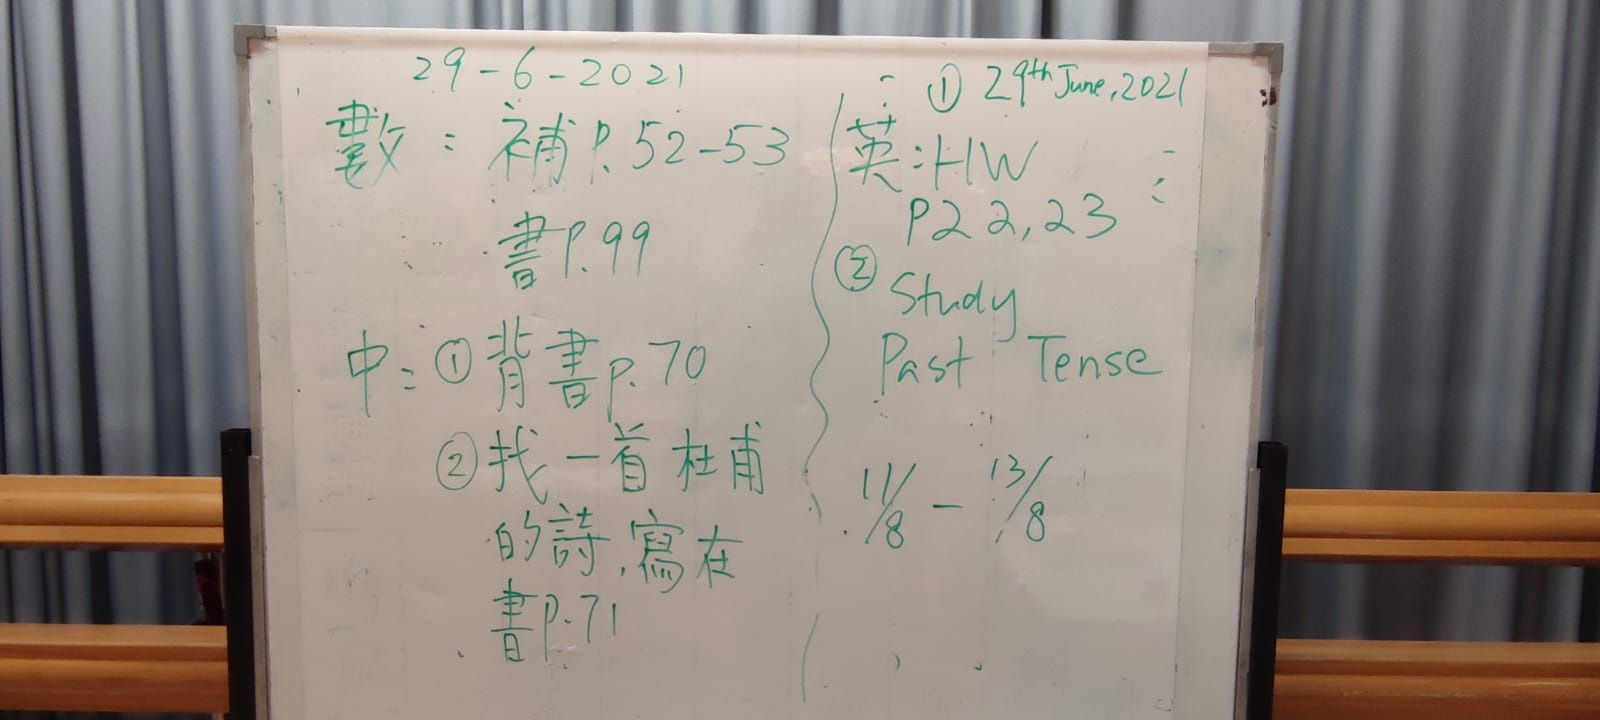 29-6-2021
數：補P.52-53
書P.99
中：①背書p.70
②找一首杜甫
的詩,寫在
書p.71
① 29th June, 2021
英：HW
P22,23
② Study
Past Tense
11/8 - 13/8